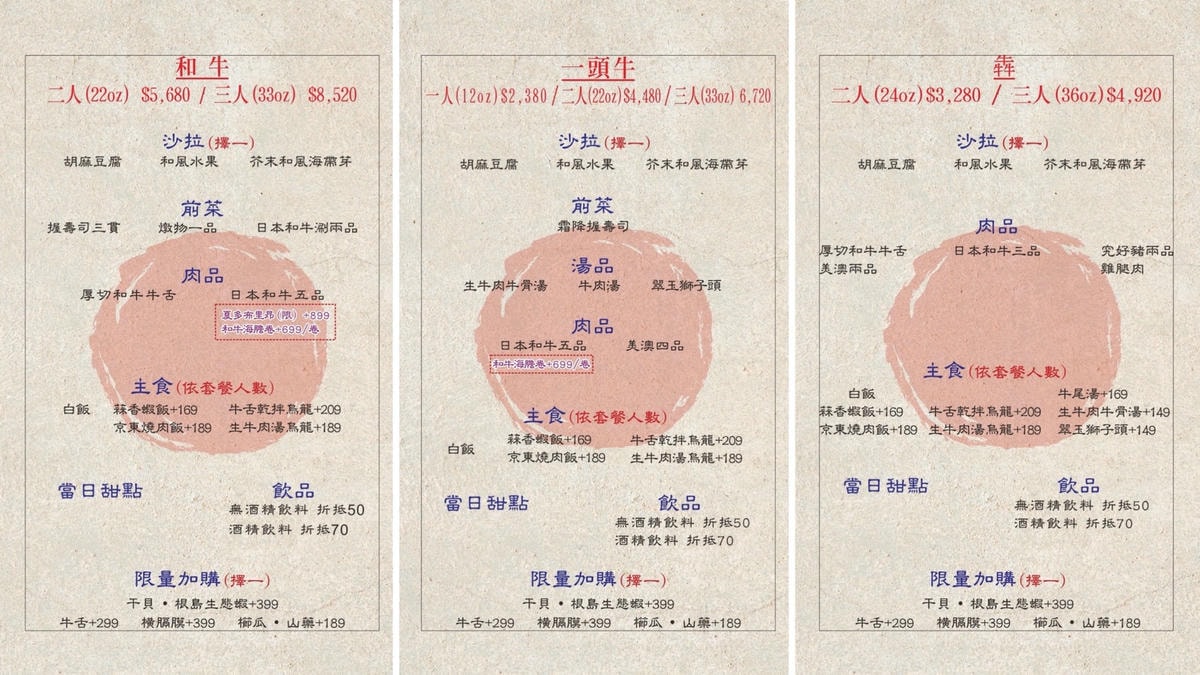 和 牛
二人(22oz) $5,680 / 三人(33oz) $8,520
沙拉(擇一)
胡麻豆腐 和風水果 芥末和風海帶芽
前菜
握壽司三貫 燉物一品 日本和牛涮兩品
肉品
厚切和牛牛舌 日本和牛五品
夏多布里昂(限) +899
和牛海膽卷+699/卷
主食(依套餐人數)
白飯 蒜香蝦飯+169 牛舌乾拌烏龍+209
京東燒肉飯+189 生牛肉湯烏龍+189
當日甜點
飲品
無酒精飲料 折抵50
酒精飲料 折抵70
限量加購(擇一)
干貝 • 根島生態蝦+399
牛舌+299 橫膈膜+399 櫛瓜 • 山藥+189
一頭牛
一人(12oz)$2,380/二人(22oz)$4,480/三人(33oz) 6,720
沙拉(擇一)
胡麻豆腐 和風水果 芥末和風海帶芽
前菜
霜降握壽司
湯品
生牛肉牛骨湯 牛肉湯 翠玉獅子頭
肉品
日本和牛五品 美澳四品
和牛海膽卷+699/卷
主食(依套餐人數)
白飯 蒜香蝦飯+169 牛舌乾拌烏龍+209
京東燒肉飯+189 生牛肉湯烏龍+189
當日甜點
飲品
無酒精飲料 折抵50
酒精飲料 折抵70
限量加購(擇一)
干貝 • 根島生態蝦+399
牛舌+299 橫膈膜+399 櫛瓜 • 山藥+189
犇
二人(24oz)$3,280 / 三人(36oz)$4,920
沙拉(擇一)
胡麻豆腐 和風水果 芥末和風海帶芽
肉品
厚切和牛牛舌 日本和牛三品 究好豬兩品
美澳兩品 雞腿肉
主食(依套餐人數)
白飯 牛尾湯+169
蒜香蝦飯+169 牛舌乾拌烏龍+209 生牛肉牛骨湯+149
京東燒肉飯+189 生牛肉湯烏龍+189 翠玉獅子頭+149
當日甜點
飲品
無酒精飲料 折抵50
酒精飲料 折抵70
限量加購(擇一)
干貝 • 根島生態蝦+399
牛舌+299 橫膈膜+399 櫛瓜 • 山藥+189